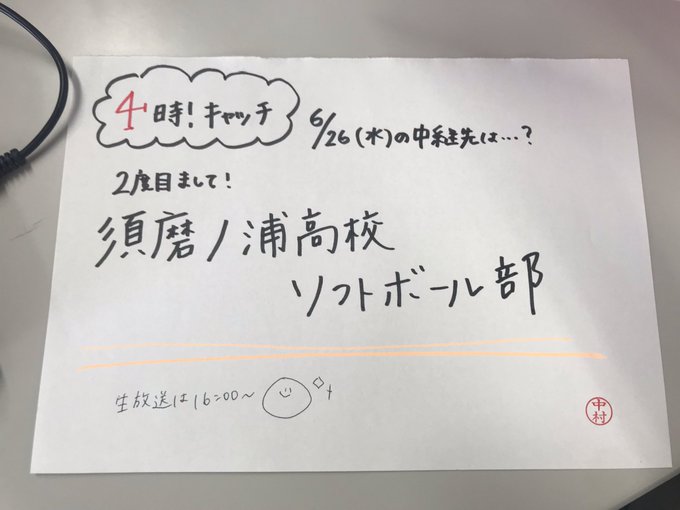 4時!キャッチ
6/26(水)の中継先は…?
2度目まして!
須磨ノ浦高校
ソフトボール部
生放送は16:00〜
中村